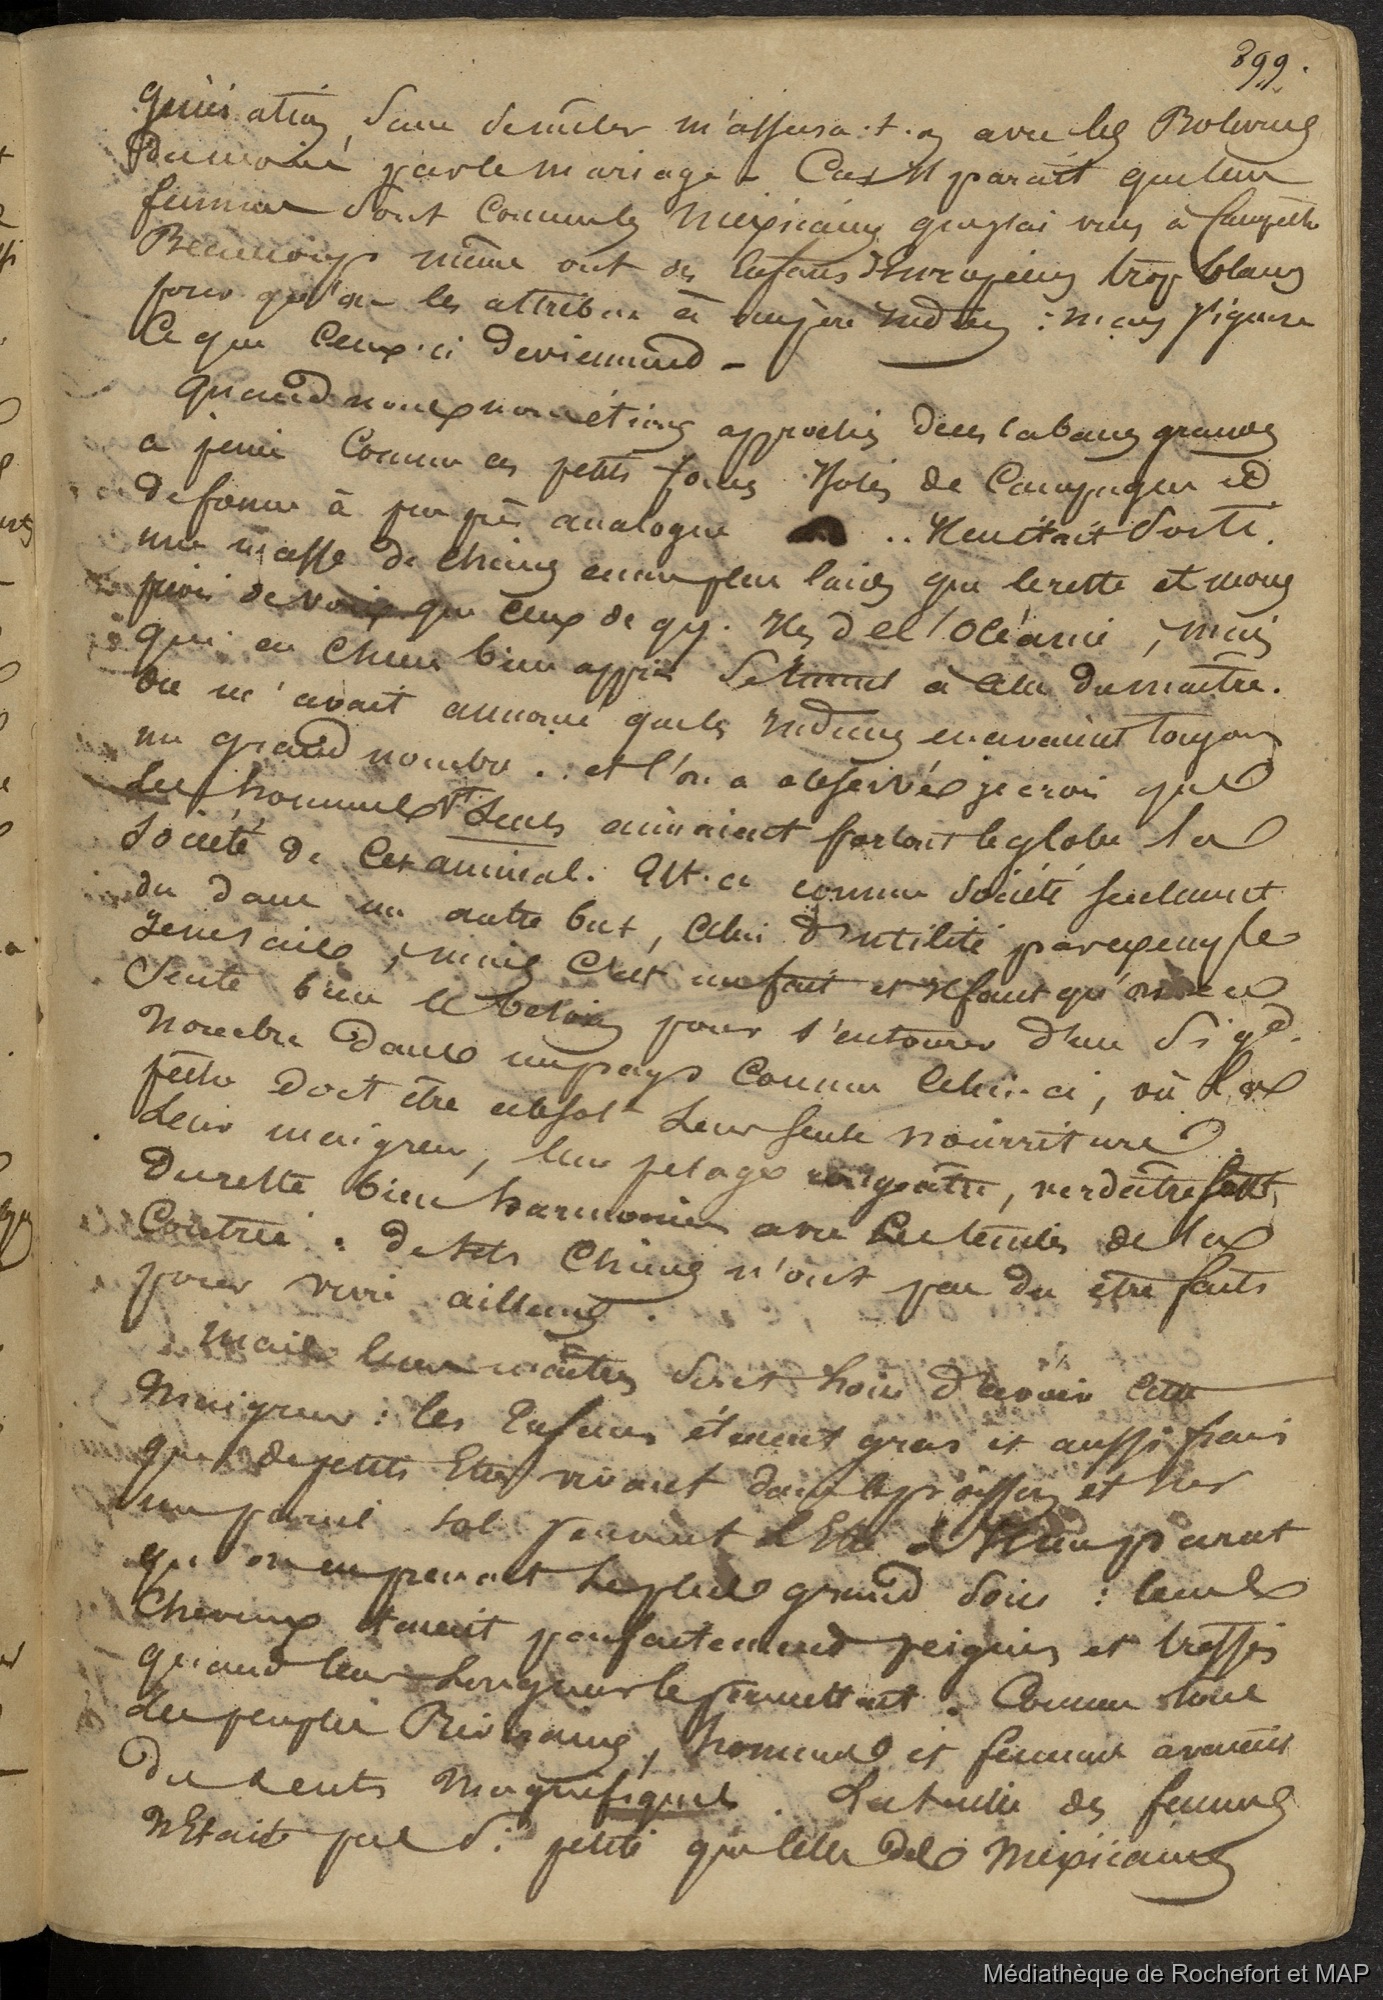 899.
génération, sans se mêler m'assura-t-on avec les Boliviens
du moins par le mariage. Car Il parait que leurs
femmes sont comme les Mexicaines que j'ai vues à Campêche
Beaucoup même ont des Enfans d'Européens trop blancs
pour qu'on les attribue à un père Indien : mais j'ignore
Ce que Ceux-ci deviennent -
Quand nous nous étions approchés des cabanes grandes
a peine Comme ces petits fours Isolés de Campagne et
de forme à peu près analogue .. Il en était sorti
une masse de chiens encore plus laids que le reste et moins
pires de voix que Ceux de qq. Iles de l'Océanie ; mais
qui en chiens bien appris se turent à celle du maître.
On m'avait annoncé que les Indiens en avaient toujours
un grand nombre .. et l'on a observé je crois que
les hommes aimaient partout le globe la
Société de Cet animal. Est-ce comme Société seulement
ou dans un autre but, Celui d'utilité par exemple
Je ne sais ; mais C'est un fait et Il faut qu'on en
Sente bien le besoin pour s'entourer d'un si gd.
Nombre dans un pays Comme Celui-ci, où la
pêche doit être absolt leur seule nourriture.
Leur maigreur, leur pelage , verdâtre font
du reste bien harmonie avec les teintes de la
Contrée : de tels Chiens n'ont pas du être faits
pour vivre ailleurs.
Mais leurs maîtres sont loin d'avoir cette
Maigreur : les Enfans étaient gras et aussi frais
que de petits Etres vivant dans le poisson et sur
un pareil sol peuvent l'Etre & Il me parut
qu'on en prenait le plus grand soin : leurs
Cheveux étaient parfaitement peignés et tressés
quand leur longueur le permettait. Comme tous
les peuples Riverains, hommes et femmes avaient
des dents Magnifiques. La taille des femmes
n'Etait pas si petite que Celle des Mexicaines
Médiathèque de Rochefort et MAP